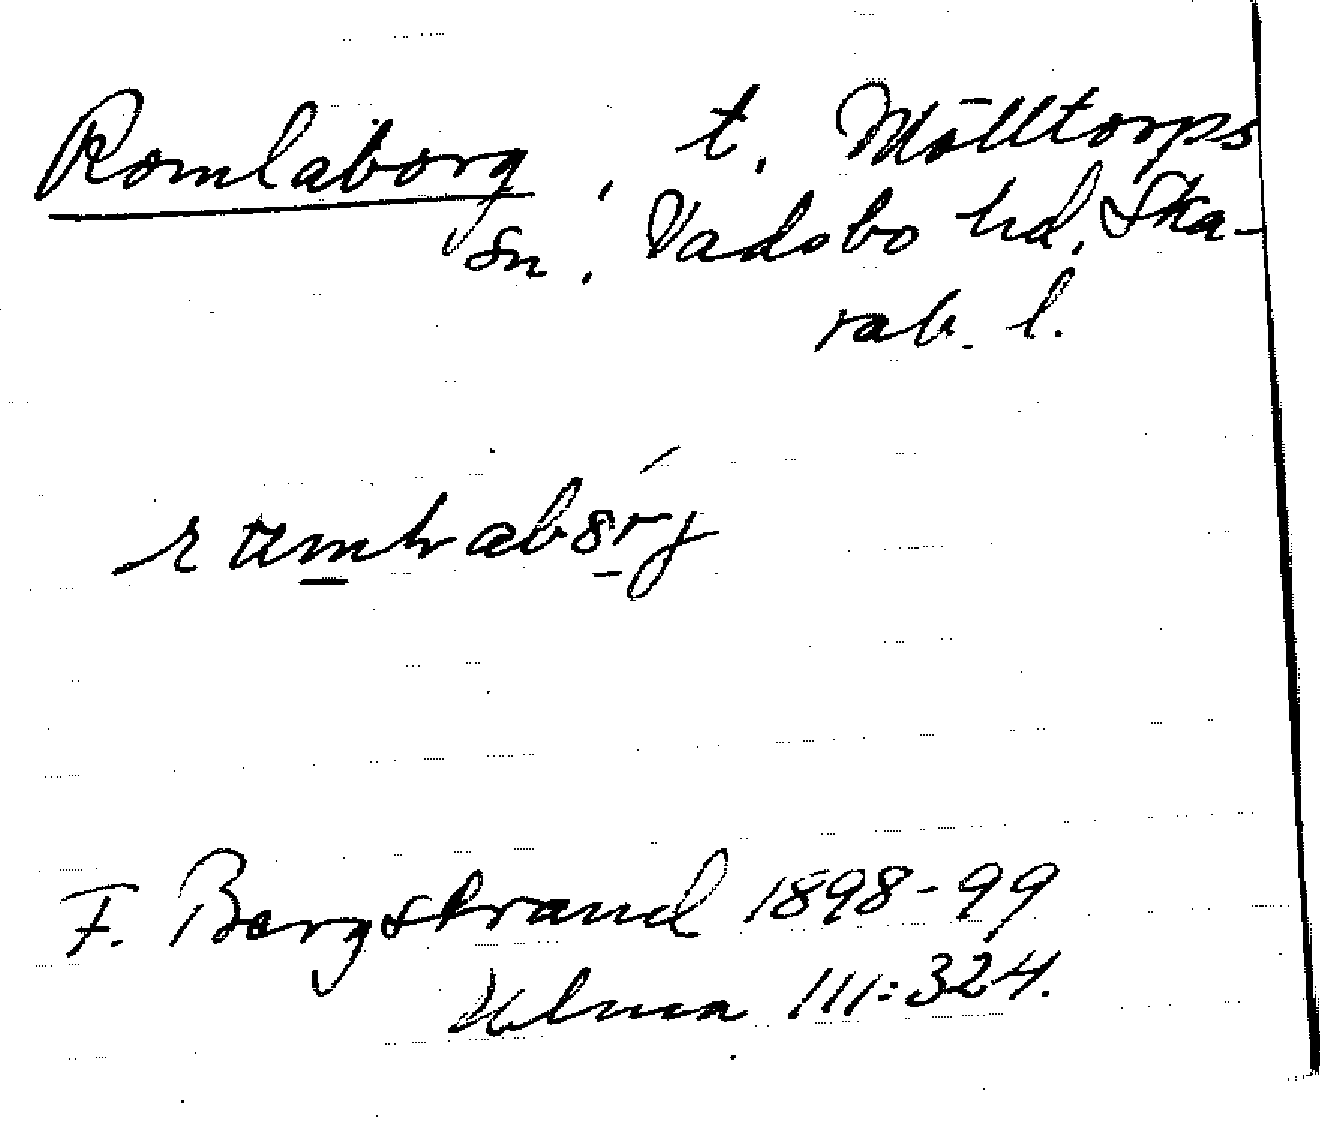 Romlaborg, t. Mölltorps
sn, Vadsbo hd, Ska-
rab. l.
F. Bergstrand 1898-99
Ulma III:324.